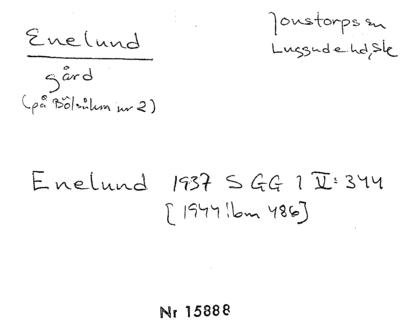 Enelund
Jonstorps sn
Luggude hd, Sk
gård
(på Bölsåkra nr 2)
Enelund 1937 SGG 1 V: 344
[1944 lbm 486]
Nr 15888